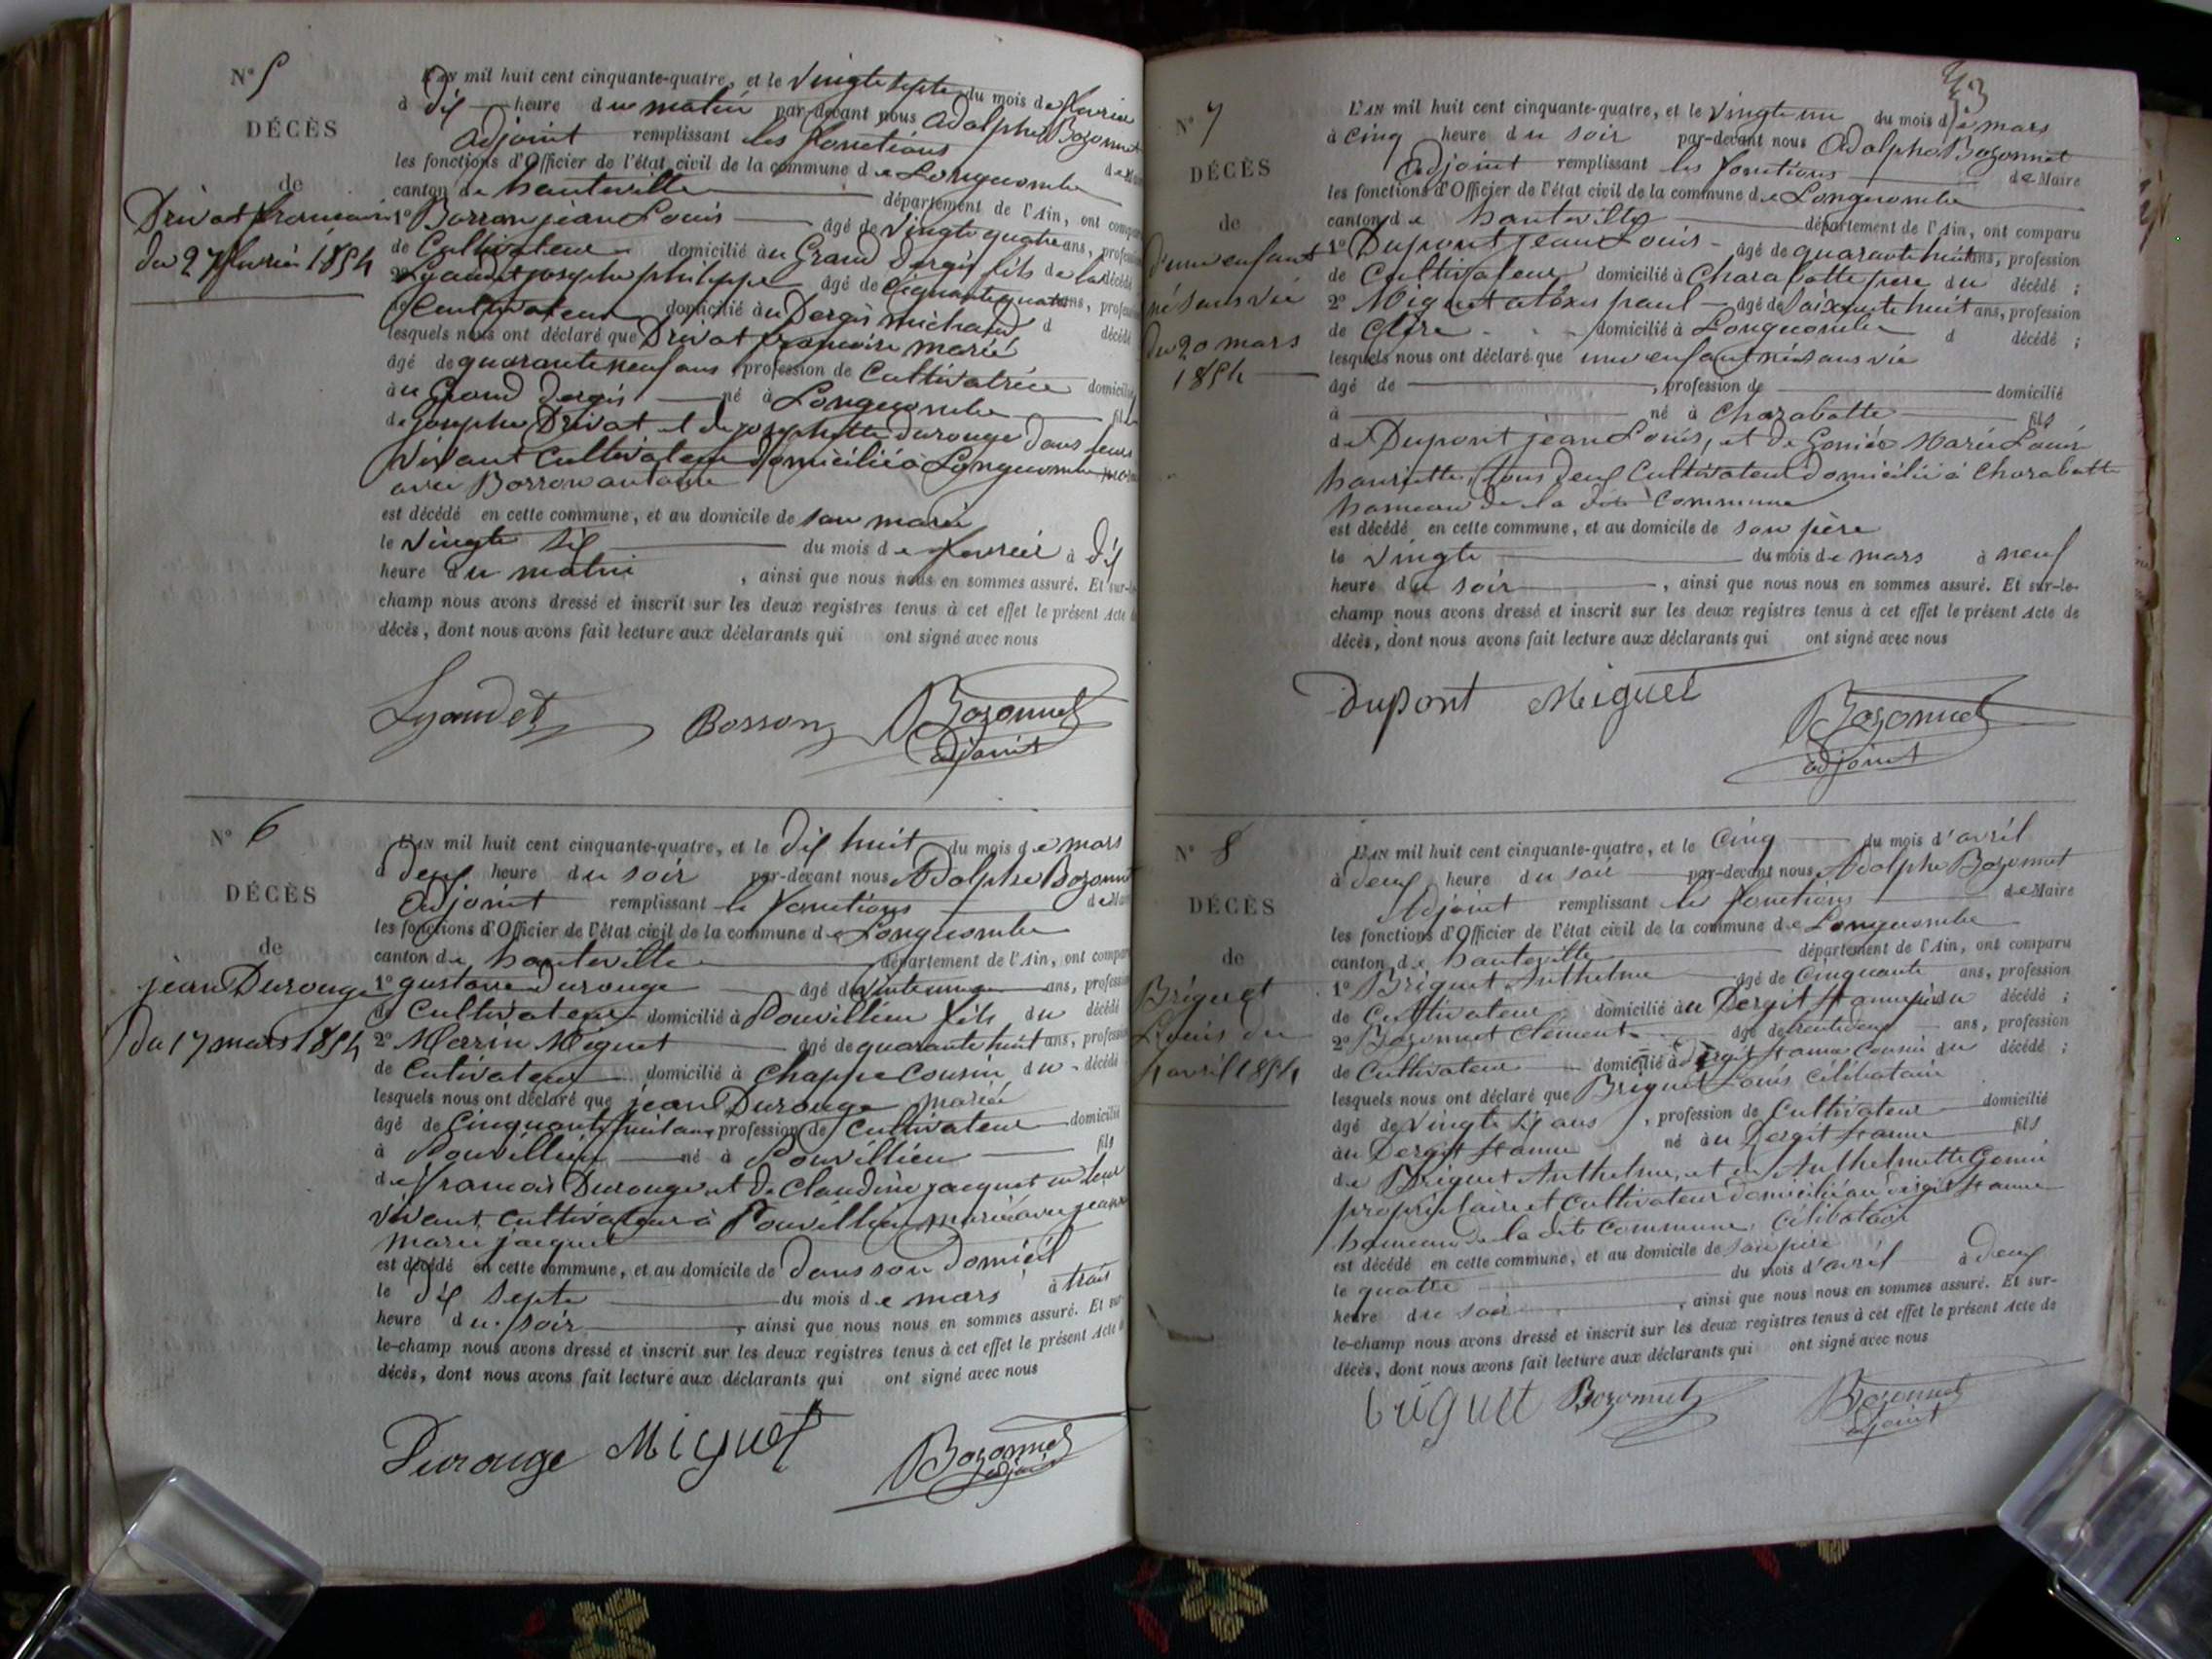 N° 5
DÉCÈS
de
Drivat francoise
du 27 fevrier 1854
L'AN mil huit cent cinquante-quatre, et le vingte septe du mois de fevrier
à dix heure du matin par-devant nous Adolphe Bozonnet
Adjoint remplissant les fonctions de
les fonctions d'Officier de l'état civil de la commune de Longecombe
canton de hauteville département de l'Ain, ont comparu
1° Borron jean Louis âgé de vingte quatre ans, profession
de Cultivateur domicilié au Grand Dergis fils de la décédé
2° Lyaudet josephe philippe âgé de Cinquante quatre ans, profession
de Cultivateur domicilié au Dergis michaud d décédé
lesquels nous ont déclaré que Drivat francoise marié
âgé de quarante neuf ans profession de Cultivatrice domicilié
au Grand Dergis né à Longecombe fille
de josephe Drivat et de josephette durouge dans leurs
vivant Cultivateur domicilié à Longecombe
avec Borron antoine
est décédé en cette commune, et au domicile de son marie
le vingte six du mois de fevrier à dix
heure du matin , ainsi que nous nous en sommes assuré. Et sur-le-
champ nous avons dressé et inscrit sur les deux registres tenus à cet effet le présent Acte de
décès, dont nous avons fait lecture aux déclarants qui ont signé avec nous
Lyaudet Borron Bozonnet
adjoint
N° 6
DÉCÈS
de
jean Durouge
du 17 mars 1854
L'AN mil huit cent cinquante-quatre, et le dix huit du mois de mars
à deux heure du soir par-devant nous Adolphe Bozonnet
Adjoint remplissant le fonctions de
les fonctions d'Officier de l'état civil de la commune de Longecombe
canton de hauteville département de l'Ain, ont comparu
1° gustave Durouge âgé de ans, profession
de Cultivateur domicilié à Pouvillieu fils du décédé
2° Merrin Miguet âgé de quarante huit ans, profession
de Cutivateur domicilié à Chappe Cousin du décédé
lesquels nous ont déclaré que jean Durouge marié
âgé de Cinquante huit ans profession de Cultivateur domicilié
à Pouvillieu né à Pouvillieu fils
de francois Durouge et de Claudine jacquet en leur
vivant Cultivateur à Pouvillieu marié avec jeanne
marie jacquet
est décédé en cette commune, et au domicile de dans son domicil
le dix septe du mois de mars à trois
heure du soir , ainsi que nous nous en sommes assuré. Et sur-
le-champ nous avons dressé et inscrit sur les deux registres tenus à cet effet le présent Acte de
décès, dont nous avons fait lecture aux déclarants qui ont signé avec nous
Durouge Miguet Bozonnet
adjoint
N° 7
DÉCÈS
de
d'une enfant
né sans vie
du 20 mars
1854
L'AN mil huit cent cinquante-quatre, et le vingte un du mois de mars
à cinq heure du soir par-devant nous Adolphe Bozonnet
Adjoint remplissant les fonctions de Maire
les fonctions d'Officier de l'état civil de la commune de Longecombe
canton de hauteville département de l'Ain, ont comparu
1° Dupont jean Louis âgé de quarante huit ans, profession
de Cultivateur domicilié à Charabotte pere du décédé ;
2° Miguet alexis paul âgé de soixante huit ans, profession
de Clere domicilié à Longecombe d décédé ;
lesquels nous ont déclaré que une enfant né sans vie
âgé de , profession de domicilié
à né à Charabotte fils
de Dupont jean Louis, et de Goniés Marie Louis
hanriette, tous deux Cultivateur domicilié à Charabotte
hameau de la dite Commune
est décédé en cette commune, et au domicile de son père
le vingte du mois de mars à neuf
heure du soir , ainsi que nous nous en sommes assuré. Et sur-le-
champ nous avons dressé et inscrit sur les deux registres tenus à cet effet le présent Acte de
décès, dont nous avons fait lecture aux déclarants qui ont signé avec nous
Dupont Miguet Bozonnet
adjoint
N° 8
DÉCÈS
de
Briguet
Louis du
4 avril 1854
L'AN mil huit cent cinquante-quatre, et le cinq du mois d'avril
à deux heure du soir par-devant nous Adolphe Bozonnet
Adjoint remplissant les fonctions de Maire
les fonctions d'Officier de l'état civil de la commune de Longecombe
canton de hauteville département de l'Ain, ont comparu
1° Briguet Anthelme âgé de Cinquante ans, profession
de Cultivateur domicilié au Dergit père du décédé ;
2° Bozonnet Clement âgé de trente deux ans, profession
de Cultivateur domicilié à Dergit Cousin du décédé ;
lesquels nous ont déclaré que Briguet Louis Célibataire
âgé de vingte six ans , profession de Cultivateur domicilié
au Dergit né au Dergit fils
de Briguet Anthelme, et de Anthelmette Gonié
propriétaire et Cultivateur domicilié au dergit
hameau de la dite Commune, Célibatair
est décédé en cette commune, et au domicile de son père
le quatre du mois d'avril à deux
heure du soir , ainsi que nous nous en sommes assuré. Et sur-
le-champ nous avons dressé et inscrit sur les deux registres tenus à cet effet le présent Acte de
décès, dont nous avons fait lecture aux déclarants qui ont signé avec nous
briguet Bozonnet Bozonnet
adjoint